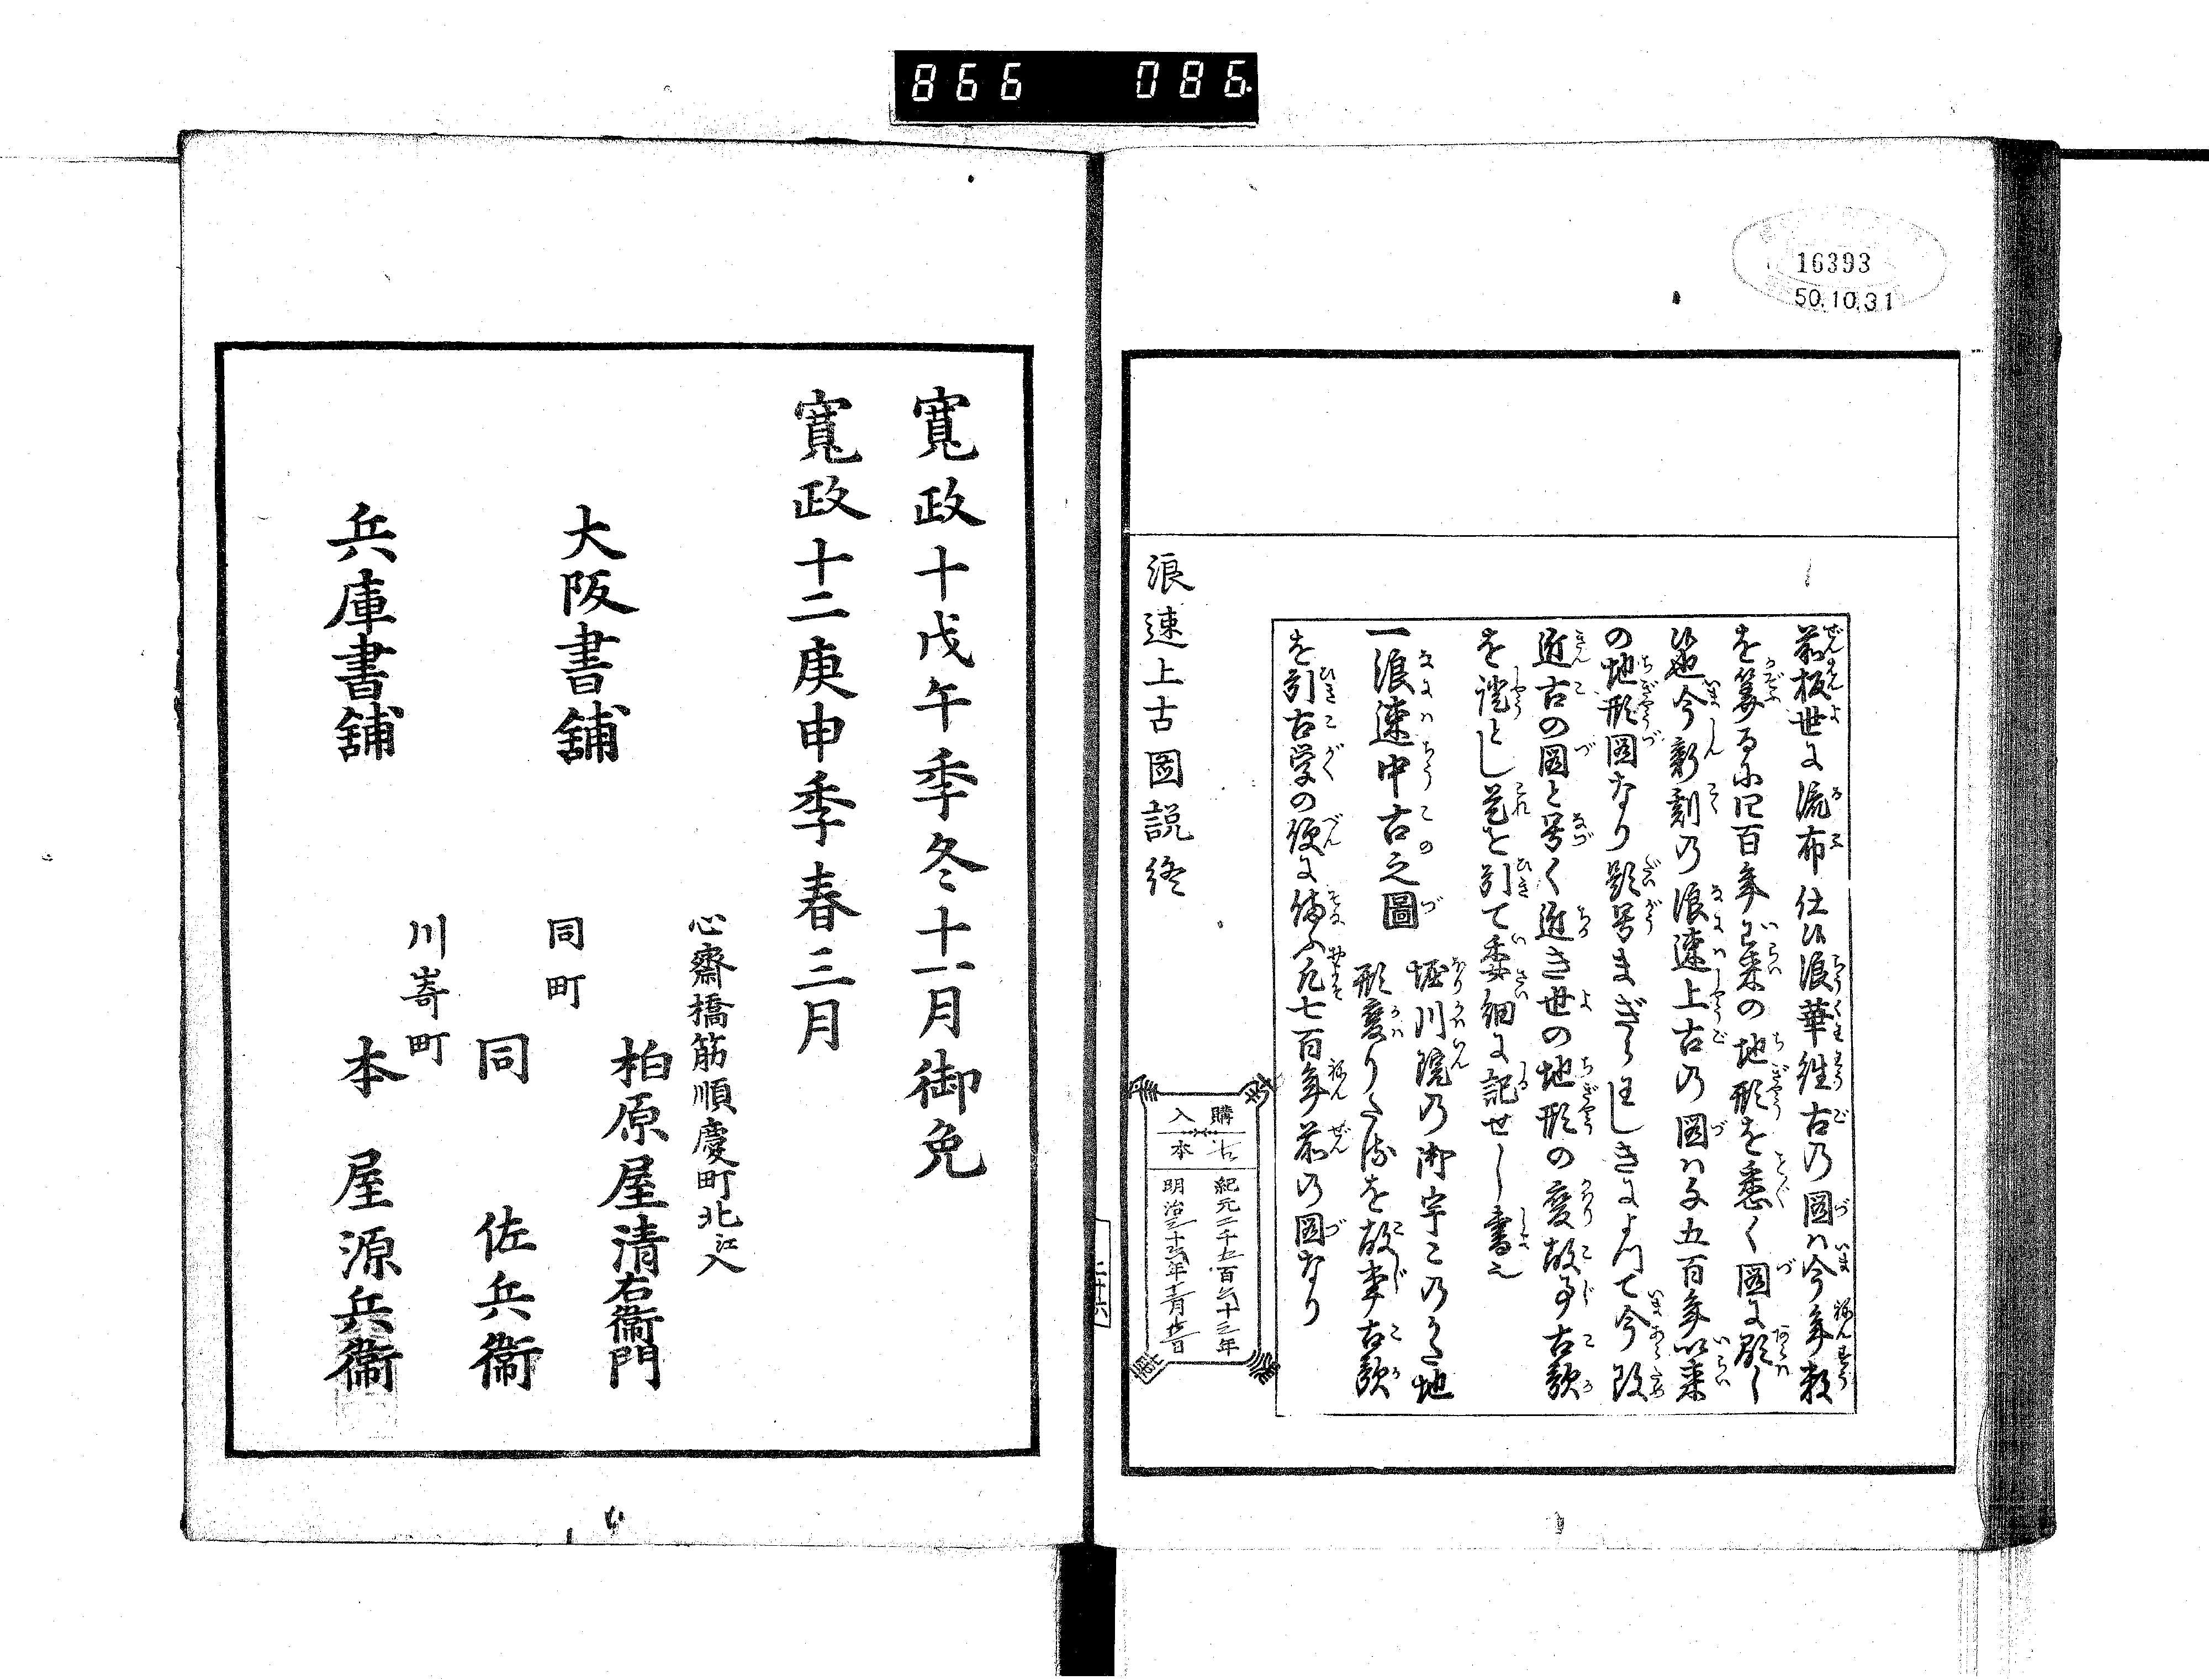 866 086
16393
50.10.31
前板世に流布仕候浪華往古の図ハ今年数
を算るに四百年以来の地形を悉く図に顕し
候也今新刻の浪速上古の図ハ千五百年以来
の地形図なり題号まぎらはしきによつて今改
近古の図と号く近き世の地形の変故事古歌
を證とし是を引て委細に記せし書也
一浪速中古之圖
堀川院の御宇この
地形変りたるを故事古歌
を引古学の便に備ふ凡七百年前の図なり
浪速上古圖説終
購入
古本
紀元二千五百六十三年
二十六
寛政十戊午季冬十一月御免
寛政十二庚申季春三月
大阪書舗
心齋橋筋順慶町北江入
柏原屋清右衛門
同町
同 佐兵衛
兵庫書舗
川嵜町
本屋源兵衛